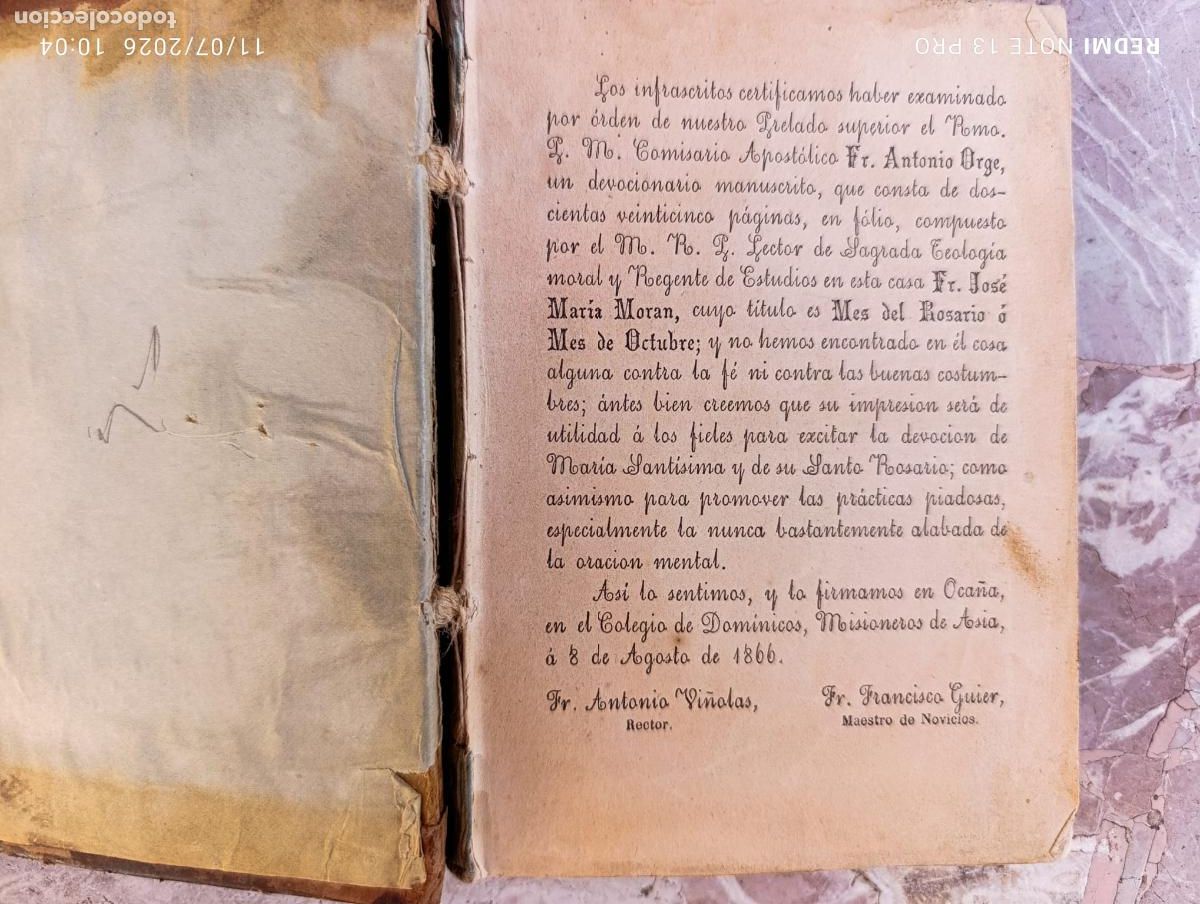 todocoleccion
11/07/2026 10:04
REDMI NOTE 13 PRO
Los infrascritos certificamos haber examinado
por órden de nuestro Prelado superior el Rmo.
P. M. Comisario Apostólico Fr. Antonio Orge,
un devocionario manuscrito, que consta de dos-
cientas veinticinco páginas, en fólio, compuesto
por el M. R. P. Lector de Sagrada Teología
moral y Regente de Estudios en esta casa Fr. José
María Moran, cuyo título es Mes del Rosario ó
Mes de Octubre; y no hemos encontrado en él cosa
alguna contra la fé ni contra las buenas costum-
bres; ántes bien creemos que su impresion será de
utilidad á los fieles para excitar la devocion de
María Santísima y de su Santo Rosario; como
asimismo para promover las prácticas piadosas,
especialmente la nunca bastantemente alabada de
la oracion mental.
Así lo sentimos, y lo firmamos en Ocaña,
en el Colegio de Domínicos, Misioneros de Asia,
á 8 de Agosto de 1866.
Fr. Antonio Viñolas,
Rector.
Fr. Francisco Guier,
Maestro de Novicios.